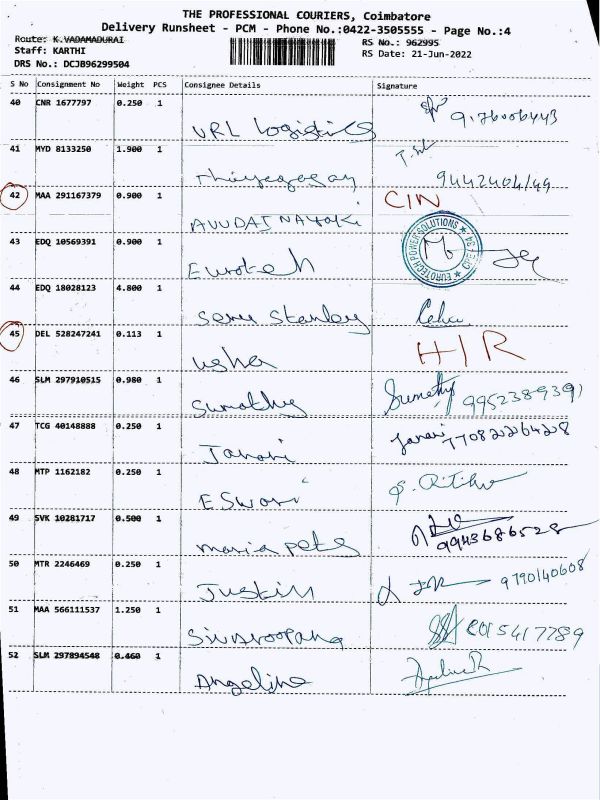 THE PROFESSIONAL COURIERS, Coimbatore
Delivery Runsheet - PCM - Phone No.:0422-3505555 - Page No.:4
Route: K.VADAMADURAI RS No.: 962995
Staff: KARTHI RS Date: 21-Jun-2022
DRS No.: DCJB96299504
S No Consignment No Weight PCS Consignee Details Signature
40 CNR 1677797 0.250 1 URL Logistics
41 MYD 8133250 1.900 1
42 MAA 291167379 0.900 1 AVUDAI NAYAKI CIN
43 EDQ 10569391 0.900 1 Eurotech EUROTECH POWER SOLUTIONS
44 EDQ 18028123 4.800 1 Stanley
45 DEL 528247241 0.113 1 usha H/R
46 SLM 297910515 0.980 1 Sumathy Sumathy
47 TCG 40148888 0.250 1 Janani 7708226428
48 MTP 1162182 0.250 1 ESwari
49 SVK 10281717 0.500 1 maria 9943686528
50 MTR 2246469 0.250 1 Justin 9790140608
51 MAA 566111537 1.250 1
52 SLM 297894548 0.460 1 Angeline